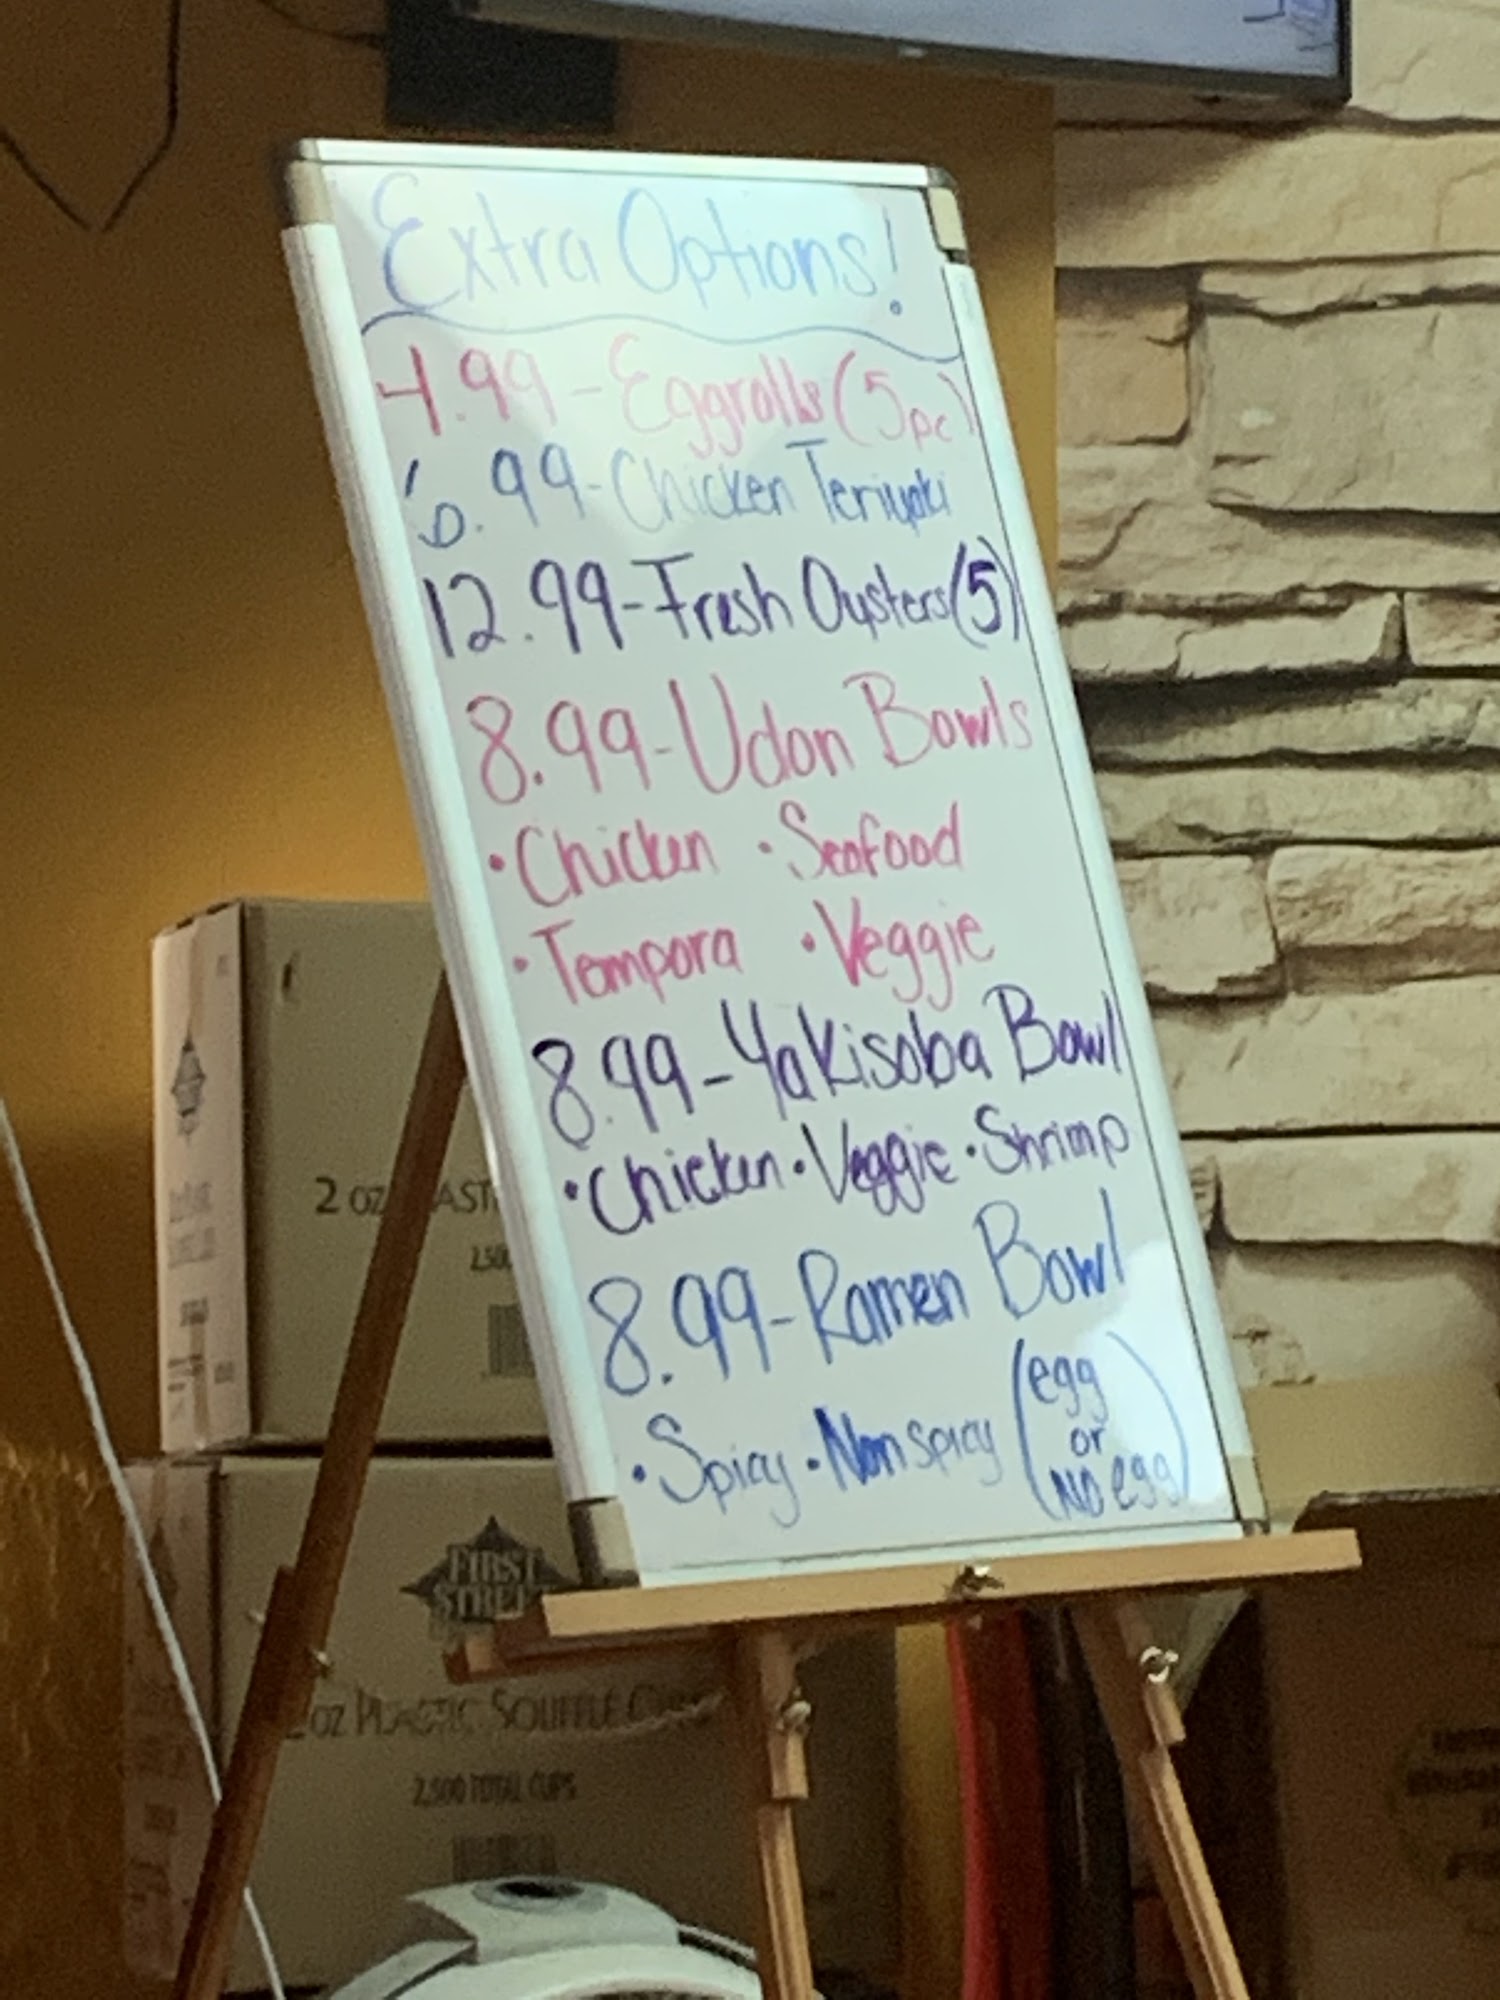 Extra Options!
4.99-Eggrolls (5pc)
6.99-Chicken Teriyaki
12.99-Fresh Oysters (5)
8.99-Udon Bowls
•Chicken •Seafood
•Tempora •Veggie
8.99-Yakisoba Bowl
•Chicken •Veggie •Shrimp
8.99-Ramen Bowl
•Spicy •Non spicy (egg
or
No egg)
2 oz
FIRST
STREET
oz PLASTIC SOUFFLE CUPS
2,500 TOTAL CUPS